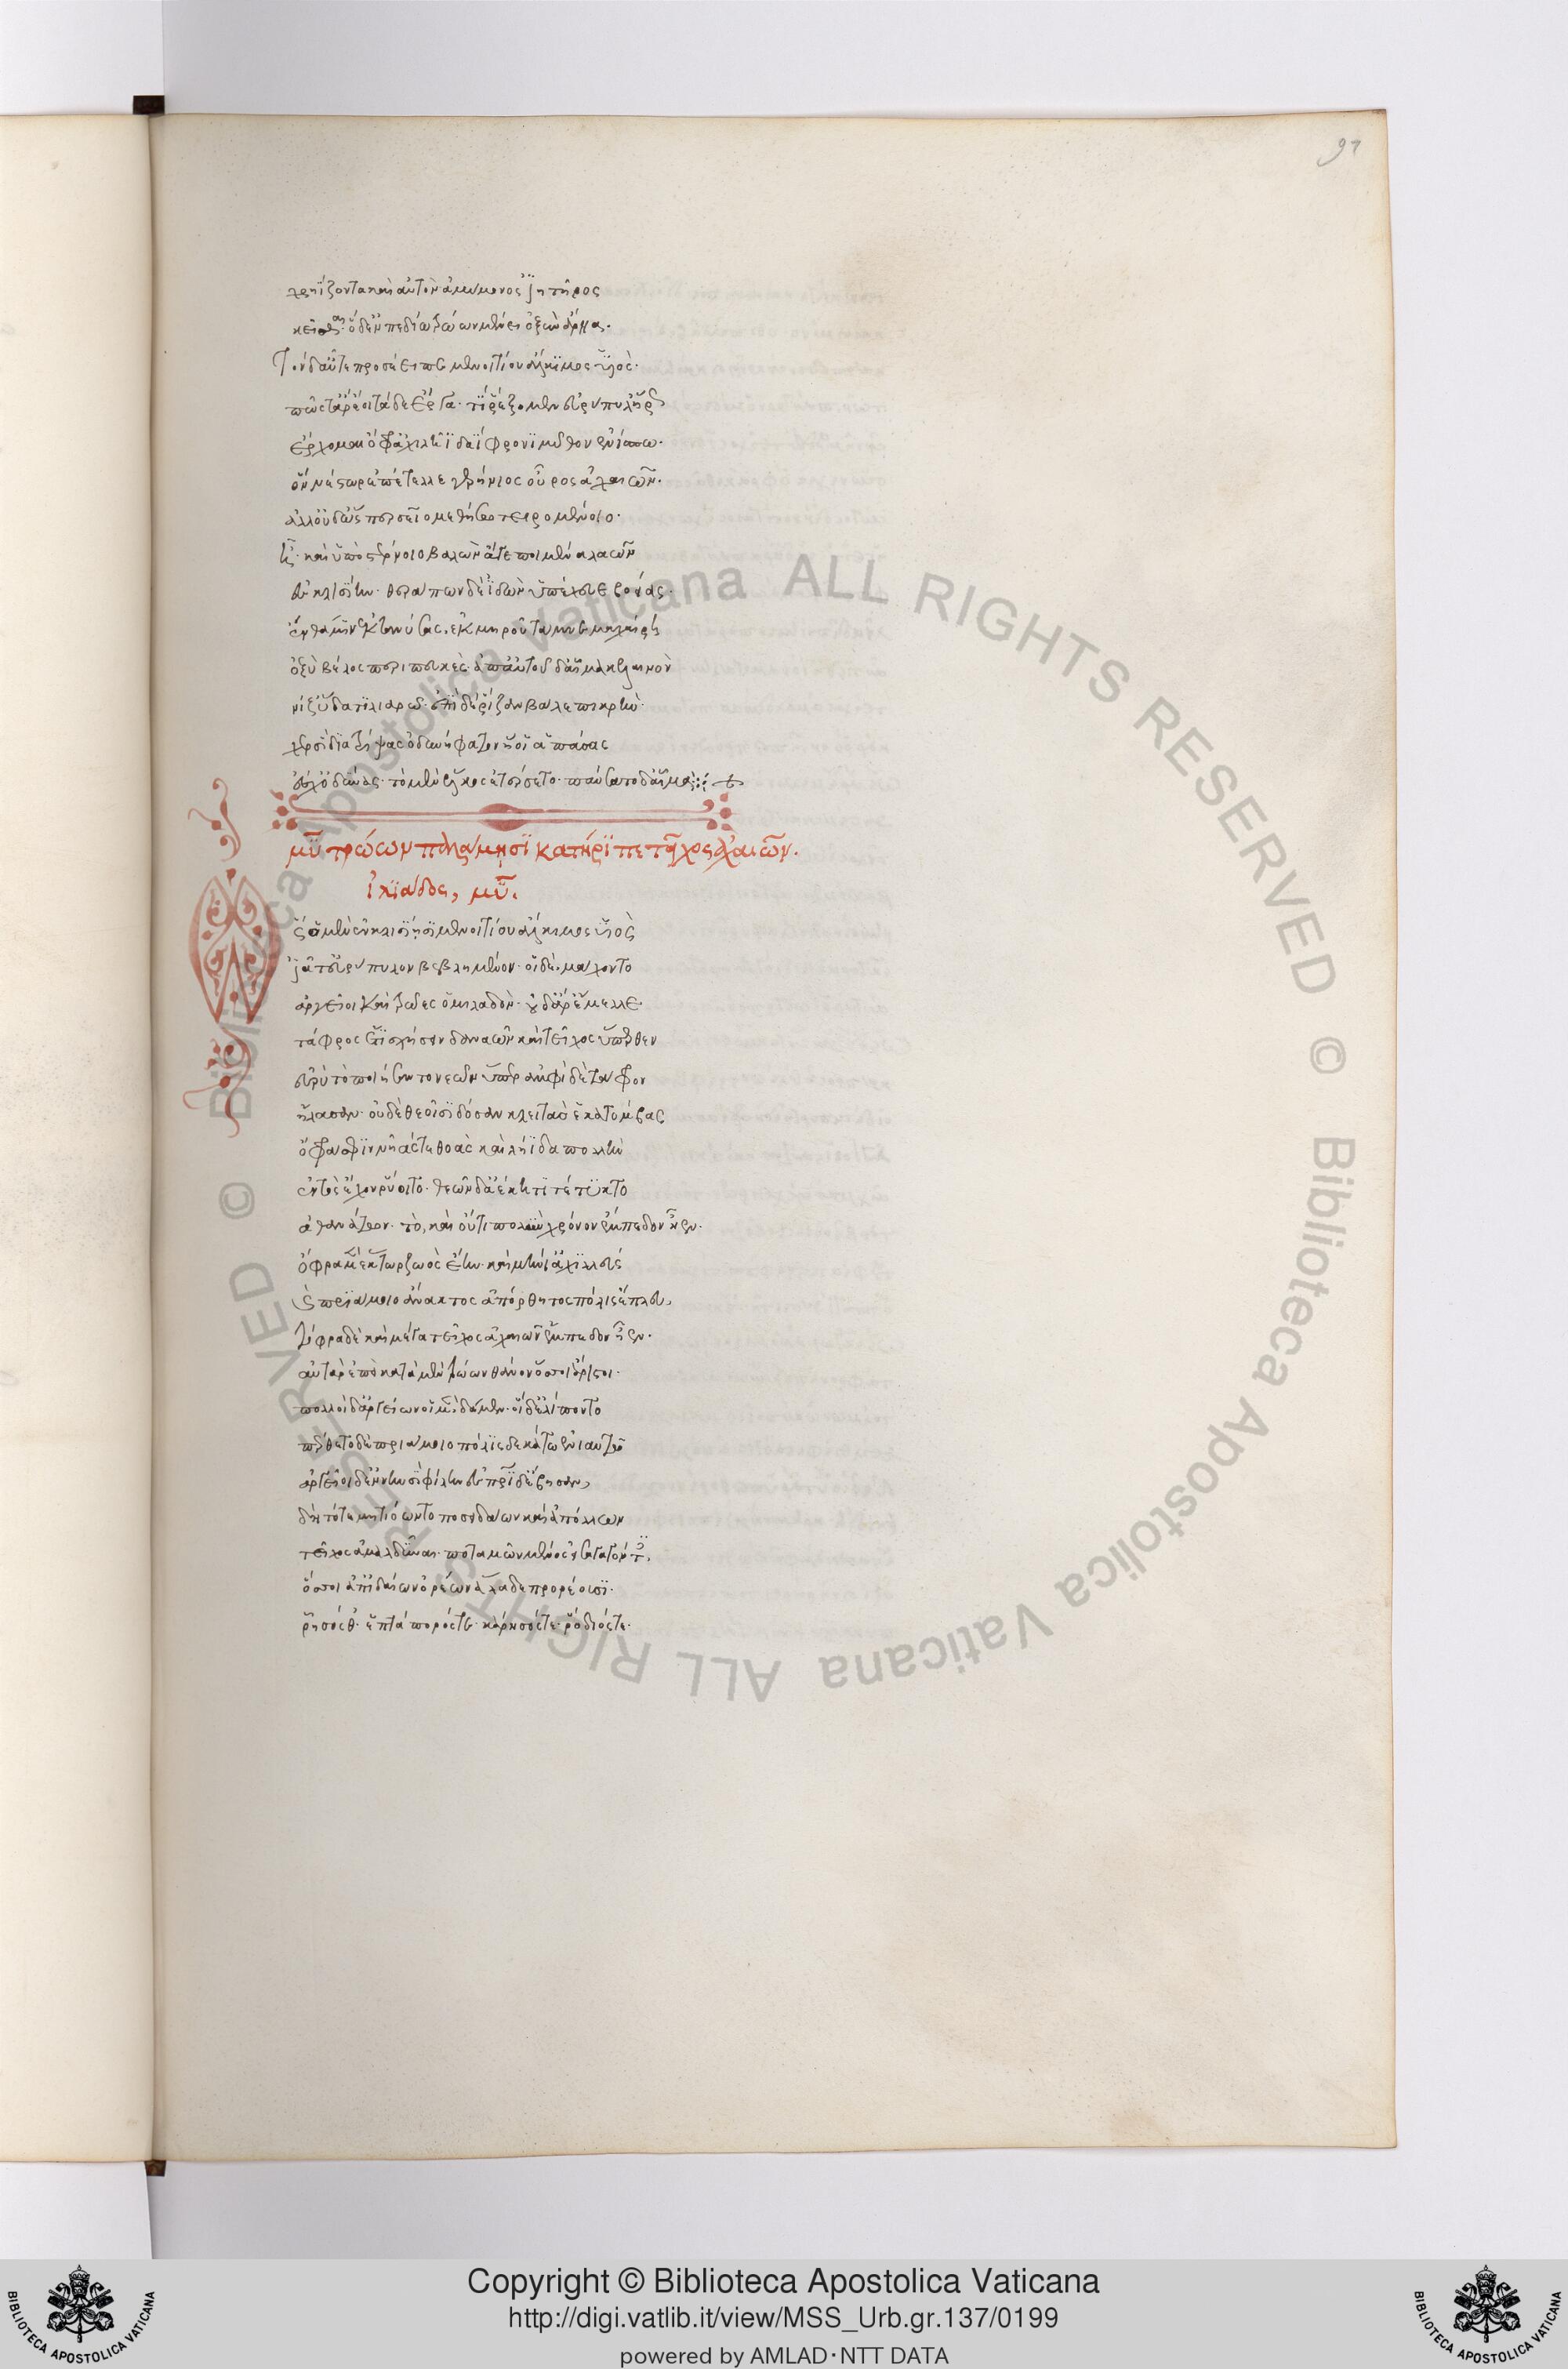 97
χρηΐζοντα καὶ αὐτὸν ἀμύμονος ἰητῆρος
κεῖσθαι· ὁ δ' ἐν πεδίω τρώων μένει ὀξὺν ἄρηα.
Τὸν δ' αὖτε προσέειπε μενοιτίου ἄλκιμος υἱὸς·
πῶς τ' ἄρ' ἔοι τάδε ἔργα· τί ῥέξομεν εὐρύπυλ' ἥρως
ἔρχομαι ὄφρ' ἀχιλῆϊ δαΐφρονι μῦθον ἐνίσπω·
ὃν νέστωρ ἐπέτελλε γερήνιος οὖρος ἀχαιῶν.
ἀλλ' οὐδ' ὥς περ σεῖο μεθήσω τειρομένοιο·
ἦ· καὶ ὑπὸ στέρνοιο λαβὼν ἄγε ποιμένα λαῶν
ἐν κλισίην· θεράπων δὲ ἰδὼν ὑπέχευε βοείας·
ἔνθά μιν ἐκτανύσας, ἐκ μηροῦ τάμνε μαχαίρῃ
ὀξὺ βέλος περιπευκὲς· ἀπ' αὐτοῦ δ' αἷμα κελαινὸν
νίζ' ὕδατι λιαρῶ· ἐπὶ δὲ ῥίζαν βάλε πικρὴν·
χερσὶ διατρίψας ὀδυνήφατον ἥ οἱ ἁπάσας
ἔσχ' ὀδύνας· τὸ μὲν ἕλκος ἐτέρσετο· παύσατο δ' αἷμα:
μῦ τρώων παλάμῃσι κατήριπε τεῖχος ἀχαιῶν.
ἰλιάδος, μῦ.
Ὣς ὁ μὲν ἐν κλισίῃσι μενοιτίου ἄλκιμος υἱὸς
ἰᾶτ' εὐρύπυλον βεβλημένον· οἱ δὲ μάχοντο
ἀργεῖοι καὶ τρῶες ὁμιλαδὸν· οὐδ' ἄρ' ἔμελλε
τάφρος ἔτι σχήσειν δαναῶν καὶ τεῖχος ὕπερθεν
εὐρὺ τὸ ποιήσαντο νεῶν ὕπερ ἀμφὶ δὲ τάφρον
ἤλασαν· οὐδὲ θεοῖσι δόσαν κλειτὰς ἑκατόμβας
ὄφρά σφιν νῆάς τε θοὰς καὶ ληΐδα πολλὴν
ἐντὸς ἔχον ῥύοιτο· θεῶν δ' ἀέκητι τέτυκτο
ἀθανάτων· τὸ, καὶ οὔτι πολὺν χρόνον ἔμπεδον ἦεν.
ὄφρα μὲν ἕκτωρ ζωὸς ἔην· καὶ μήνι' ἀχιλλεύς
καὶ πριάμοιο ἄνακτος ἀπόρθητος πόλις ἔπλεν,
τόφρα δὲ καὶ μέγα τεῖχος ἀχαιῶν ἔμπεδον ἦεν.
αὐτὰρ ἐπεὶ κατὰ μὲν τρώων θάνον ὅσσοι ἄριστοι·
πολλοὶ δ' ἀργείων οἱ μὲν δάμεν· οἱ δὲ λίποντο
πέρθετο δὲ πριάμοιο πόλις δεκάτω ἐνιαυτῶ
ἀργεῖοι δ' ἐν νηυσὶ φίλην ἐς πατρίδ' ἔβησαν,
δὴ τότε μητιόωντο ποσειδάων καὶ ἀπόλλων
τεῖχος ἀμαλδῦναι· ποταμῶν μένος εἰσαγαγόντες,
ὅσσοι ἀπ' ἰδαίων ὀρέων ἅλαδε προρέουσι·
ῥῆσός θ' ἑπτάπορός τε· κάρησός τε· ῥοδίος τε·
Copyright © Biblioteca Apostolica Vaticana
http://digi.vatlib.it/view/MSS_Urb.gr.137/0199
powered by AMLAD·NTT DATA